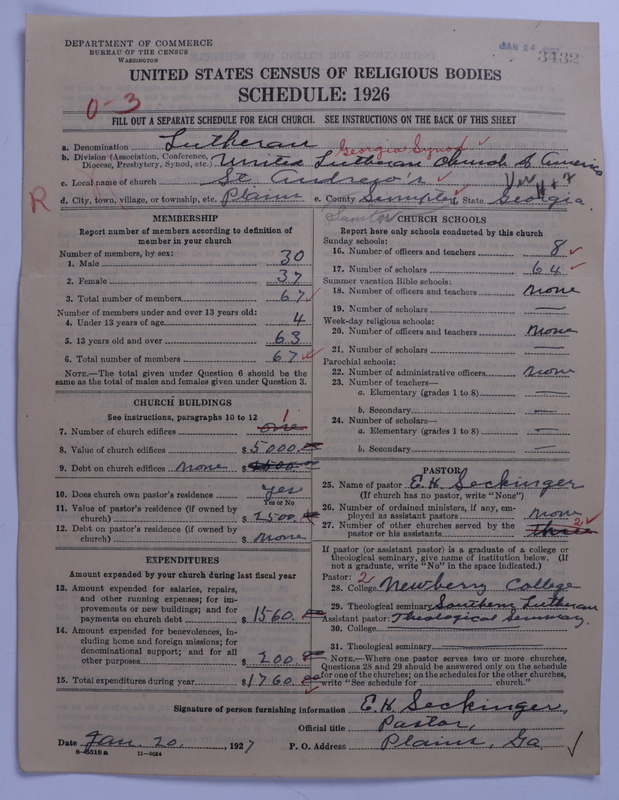 DEPARTMENT OF COMMERCE
BUREAU OF THE CENSUS
WASHINGTON
JAN 24
3432
UNITED STATES CENSUS OF RELIGIOUS BODIES
SCHEDULE: 1926
0-3
FILL OUT A SEPARATE SCHEDULE FOR EACH CHURCH. SEE INSTRUCTIONS ON THE BACK OF THIS SHEET
a. Denomination Lutheran
Georgia Synod
b. Division (Association, Conference, Diocese, Presbytery, Synod, etc.) United Lutheran Church in America
c. Local name of church St. Andrew's
R
d. City, town, village, or township, etc. Plains e. County Sumpter State Georgia.
Sumter
MEMBERSHIP
Report number of members according to definition of
member in your church
Number of members, by sex:
1. Male 30
2. Female 37
3. Total number of members 67
Number of members under and over 13 years old:
4. Under 13 years of age 4
5. 13 years old and over 63
6. Total number of members 67
NOTE.—The total given under Question 6 should be
the same as the total of males and females given under Question 3.
CHURCH BUILDINGS
See instructions, paragraphs 10 to 12
7. Number of church edifices one 1
8. Value of church edifices $ 5000.00
9. Debt on church edifices none $
10. Does church own pastor's residence yes
Yes or No
11. Value of pastor's residence (if owned by
church) $ 2500.
12. Debt on pastor's residence (if owned by
church) $ none
EXPENDITURES
Amount expended by your church during last fiscal year
13. Amount expended for salaries, repairs,
and other running expenses; for im-
provements or new buildings; and for
payments on church debt $ 1560.00
14. Amount expended for benevolences, in-
cluding home and foreign missions; for
denominational support; and for all
other purposes $ 200.00
15. Total expenditures during year $ 1760.00
CHURCH SCHOOLS
Report here only schools conducted by this church
Sunday schools:
16. Number of officers and teachers 8
17. Number of scholars 64
Summer vacation Bible schools:
18. Number of officers and teachers none
19. Number of scholars —
Week-day religious schools:
20. Number of officers and teachers none
21. Number of scholars —
Parochial schools:
22. Number of administrative officers none
23. Number of teachers—
a. Elementary (grades 1 to 8) —
b. Secondary —
24. Number of scholars—
a. Elementary (grades 1 to 8) —
b. Secondary —
PASTOR
25. Name of pastor E. K. Seckinger
(If church has no pastor, write "None")
26. Number of ordained ministers, if any, em-
ployed as assistant pastors none
27. Number of other churches served by the
pastor or his assistants Three 2
If pastor (or assistant pastor) is a graduate of a college or
theological seminary, give name of institution below. (If
not a graduate, write "No" in the space indicated.)
Pastor: 2
28. College Newberry College
29. Theological seminary Southern Lutheran
Assistant pastor: Theological Seminary.
30. College
31. Theological seminary
NOTE.—Where one pastor serves two or more churches,
Questions 28 and 29 should be answered only on the schedule
for one of the churches; on the schedules for the other churches,
write "See schedule for church."
Signature of person furnishing information E. K. Seckinger,
Official title Pastor,
Date Jan. 20, 1927 P. O. Address Plains, Ga
8-5518a 11-9024